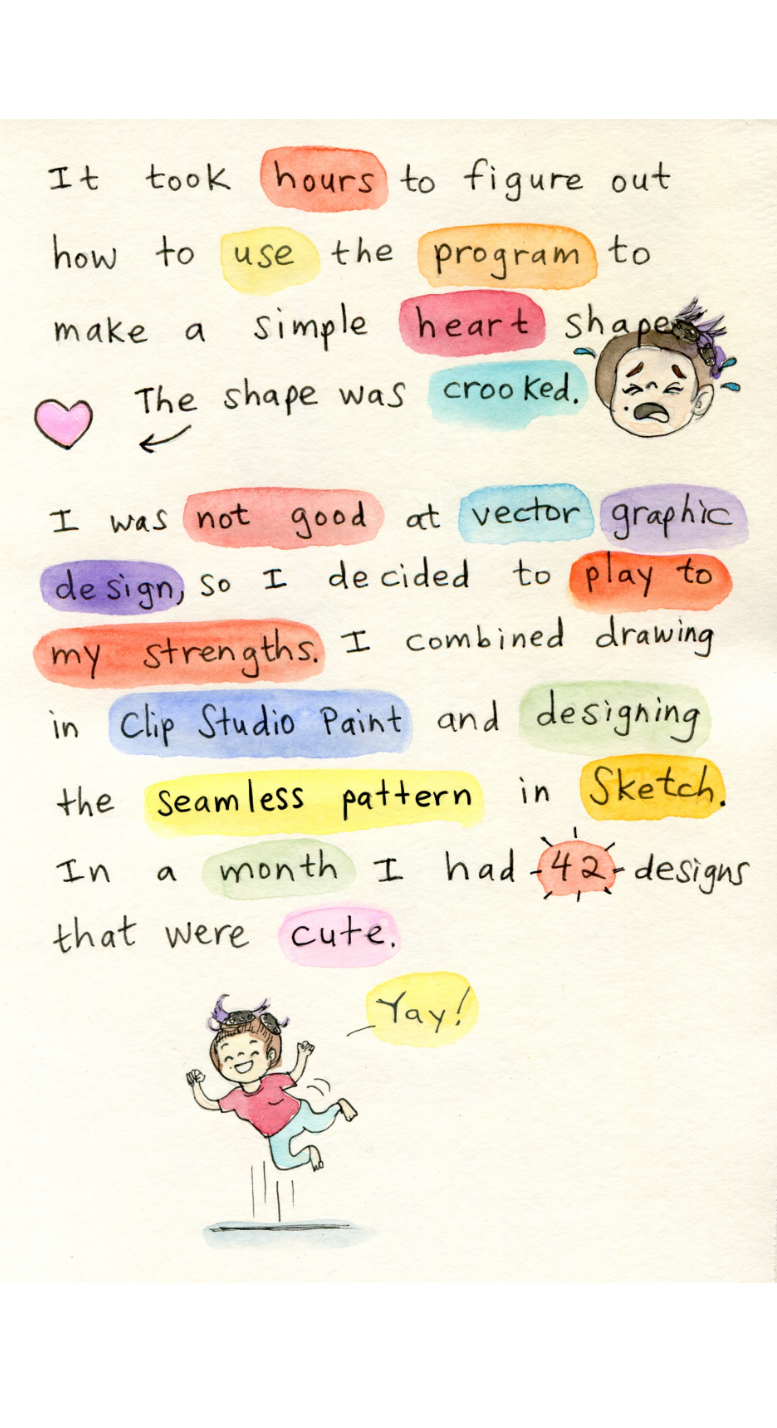 It took hours to figure out
how to use the program to
make a simple heart shape.
The shape was crooked.
I was not good at vector graphic
design, so I decided to play to
my strengths. I combined drawing
in Clip Studio Paint and designing
the seamless pattern in Sketch.
In a month I had 42 designs
that were cute.
Yay!